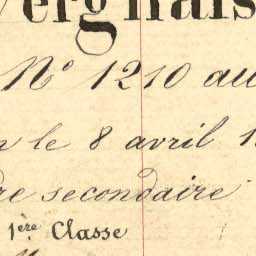 vergnais
N° 1210 au
le 8 avril 1
secondaire
1ère Classe